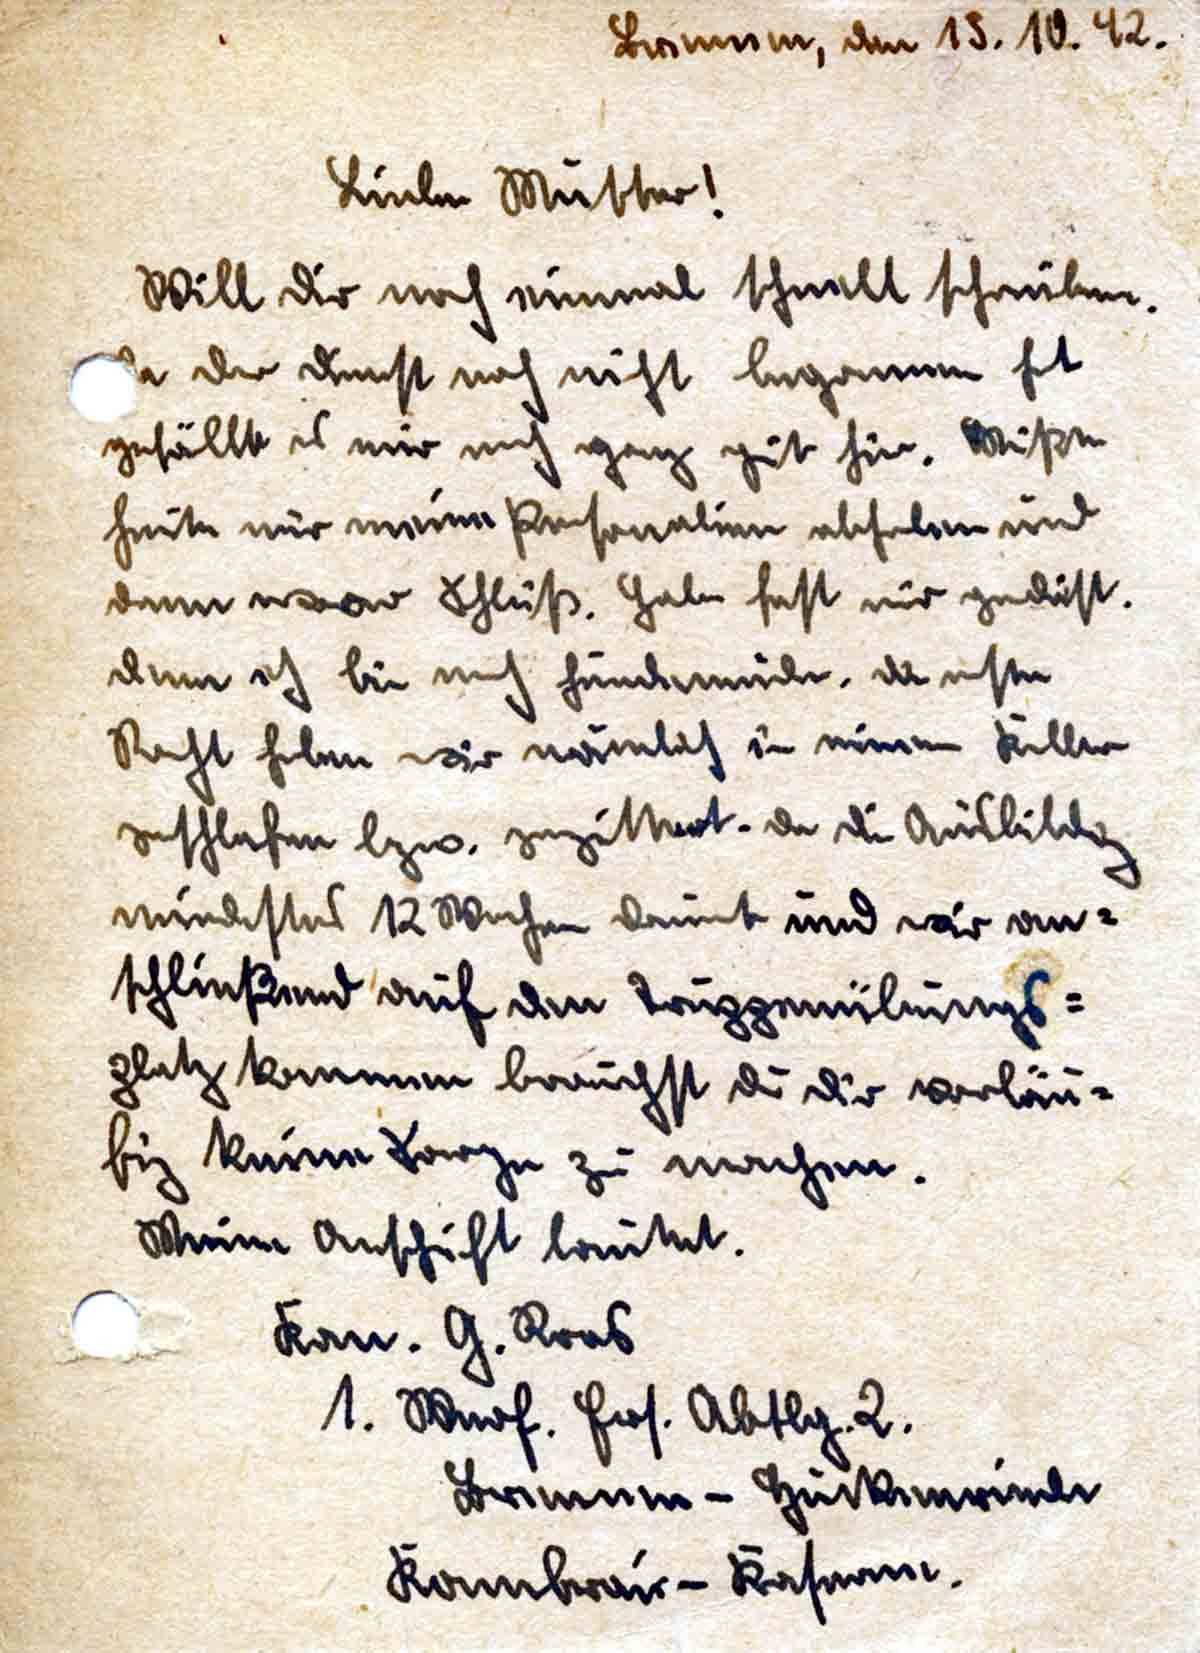 Bremen, den 15. 10. 42.
Liebe Mutter!
Will dir noch einmal schnell schreiben.
Da der Dienst noch nicht begonnen hat
gefällt es mir noch ganz gut hier. Mußte
heute nur meine Personalien abgeben und
dann war Schluß. Habe fast nur gedöst.
denn ich bin noch hundemüde. die erste
Nacht haben wir nämlich in einem Keller
geschlafen bzw. gezittert. da die Ausbildg
mindestens 12 Wochen dauert und wir an=
schließend auf den Truppenübungs=
platz kommen brauchst du dir vorläu=
fig keine Sorge zu machen.
Meine Anschrift lautet.
Kan. G. Roos
1. Werf. Ers. Abtlg. 2.
Bremen - Huckelriede
Kambrai - Kaserne.